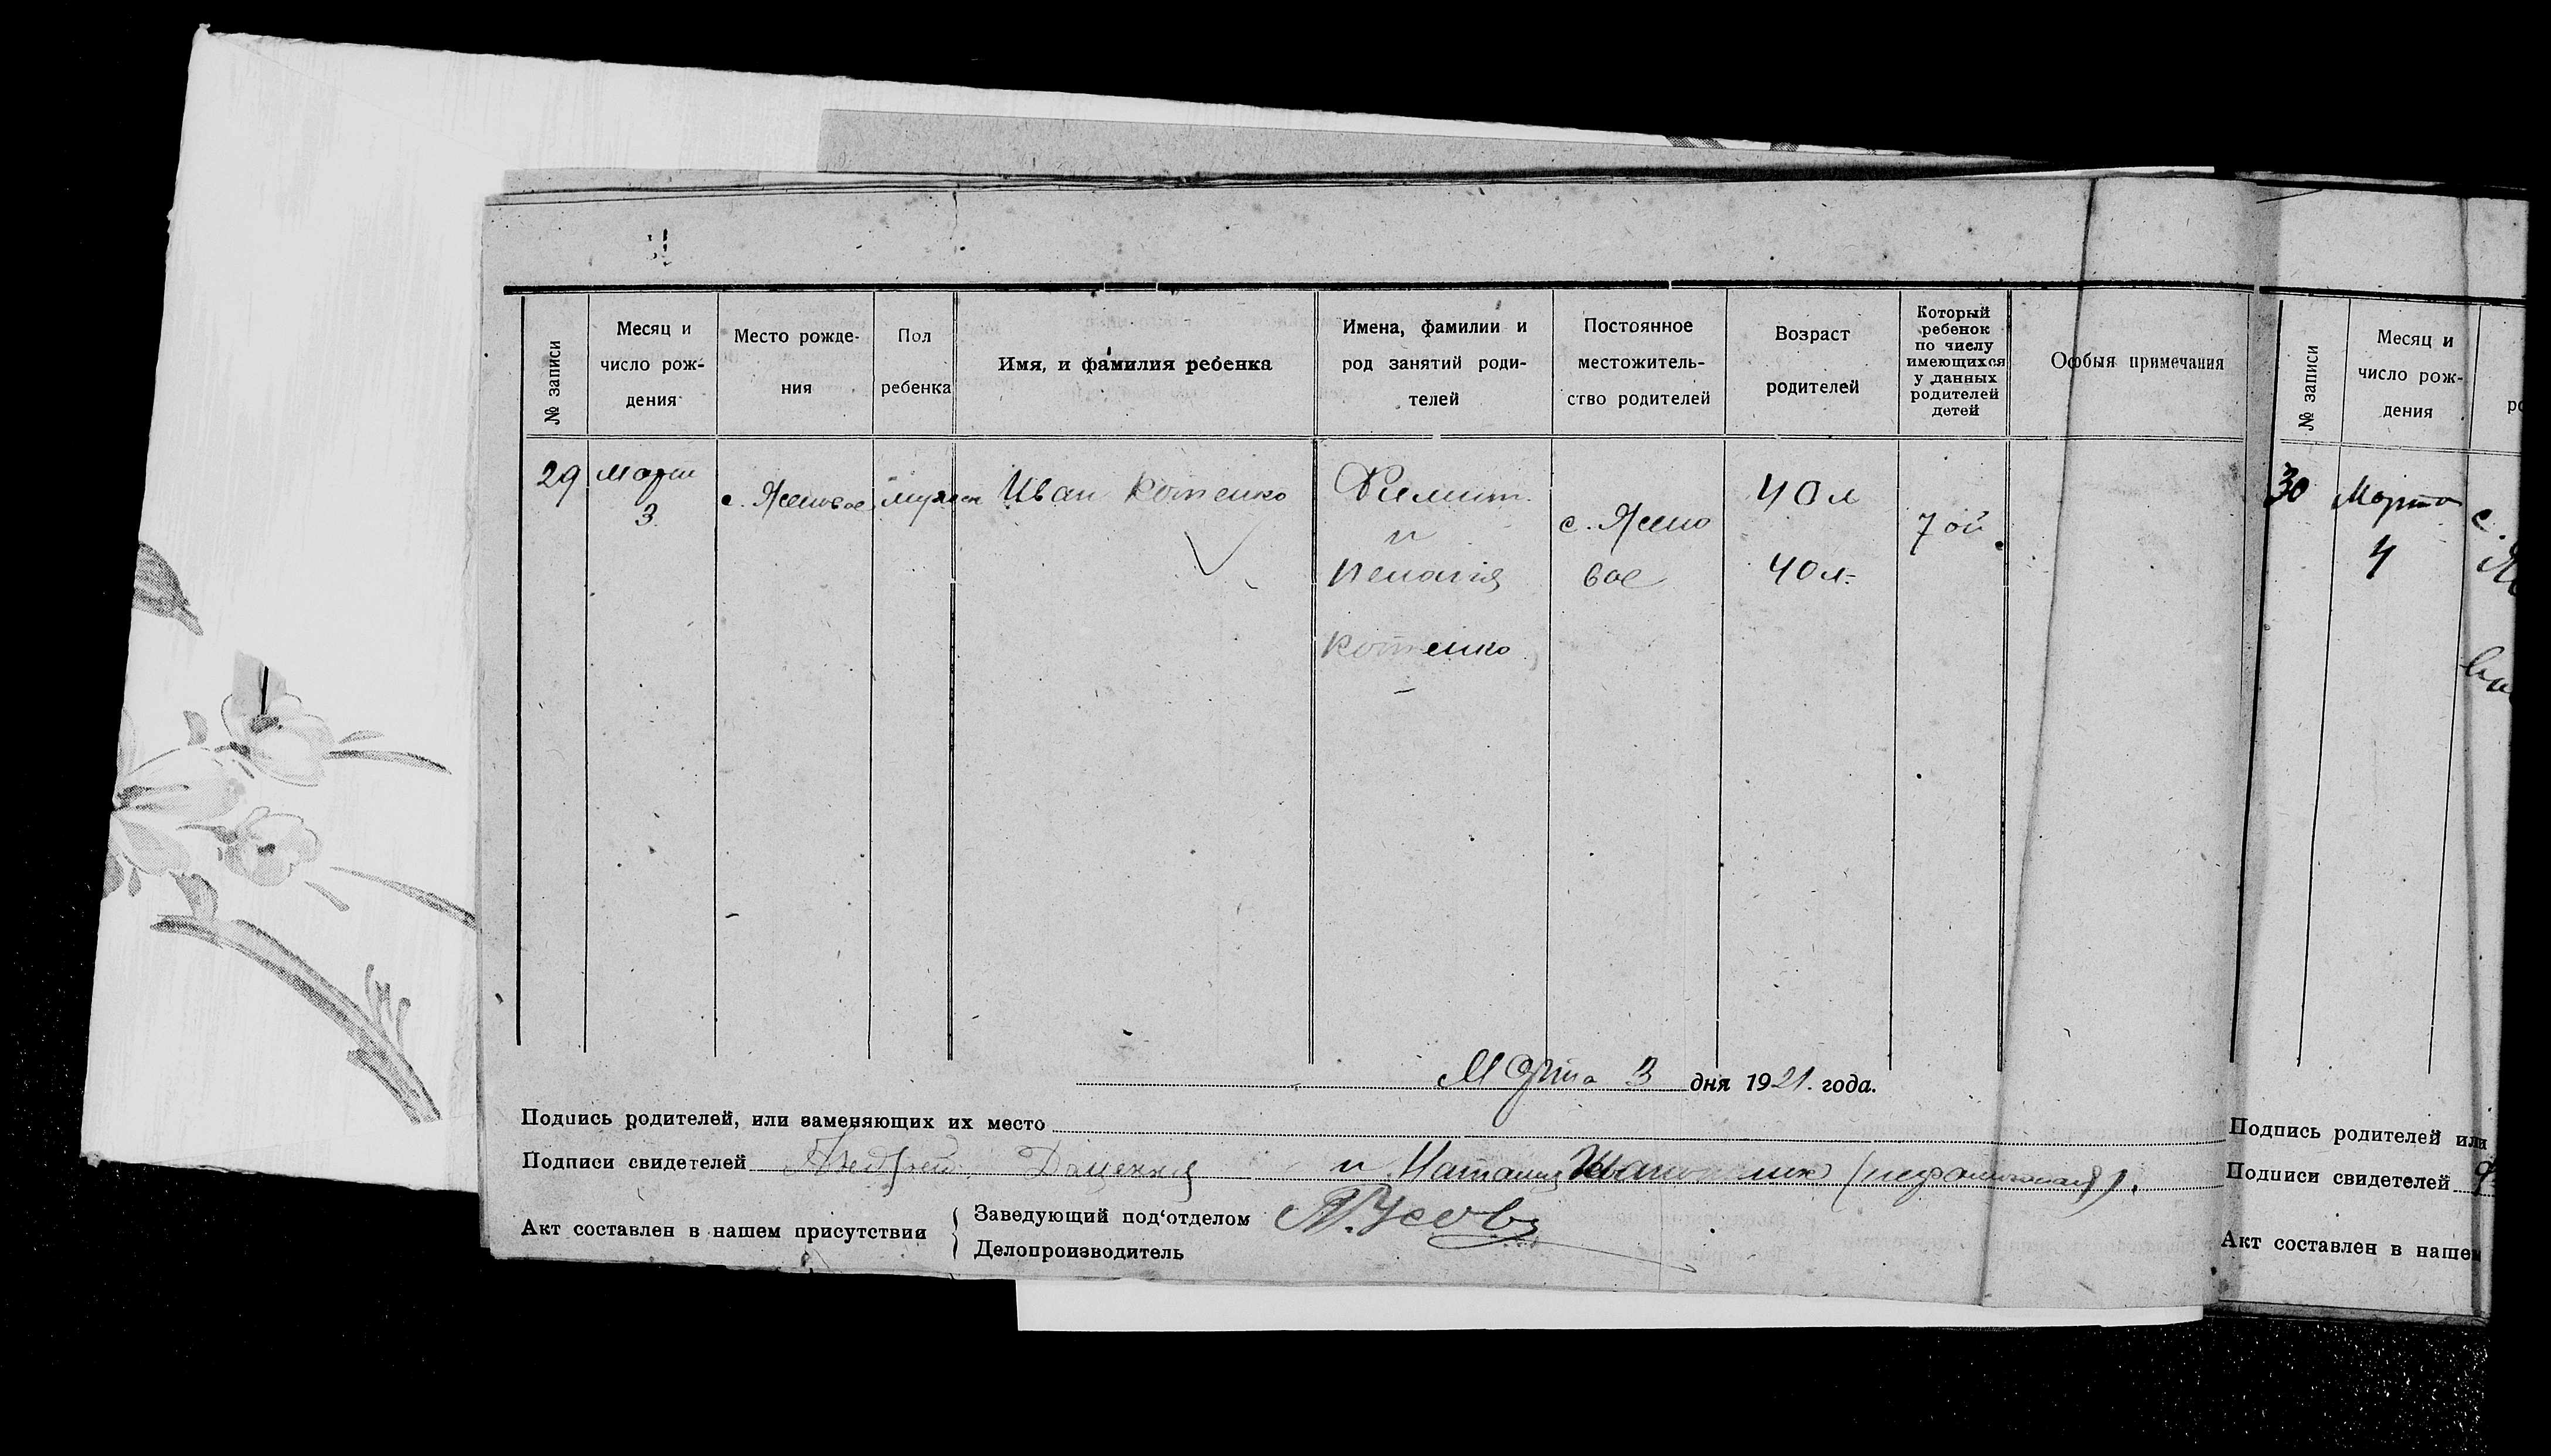 № записи
Месяц и
число рож-
дения
Место рожде-
ния
Пол
ребенка
Имя, и фамилия ребенка
Имена, фамилии и
род занятий роди-
телей
Постоянное
местожитель-
ство родителей
Возраст
родителей
Который
ребенок
по числу
имеющихся
у данных
родителей
детей
Особыя примечания
29
Март
3
с. Ясеновое
мужск
Иван Котенко
Филит.
и
Пелагія
Котенко
с. Ясено
вое
40 л
40 л.
7 ой
Марта 3 дня 1921. года.
Подпись родителей, или заменяющих их место
Подписи свидетелей Андрей Даценко и Наталия (неграмотная).
Акт составлен в нашем присутствии
Заведующий под‘отделом Усов
Делопроизводитель
№ записи
Месяц и
число рож-
дения
30
Марта
4
с.
Подпись родителей или
Подписи свидетелей
Акт составлен в нашем